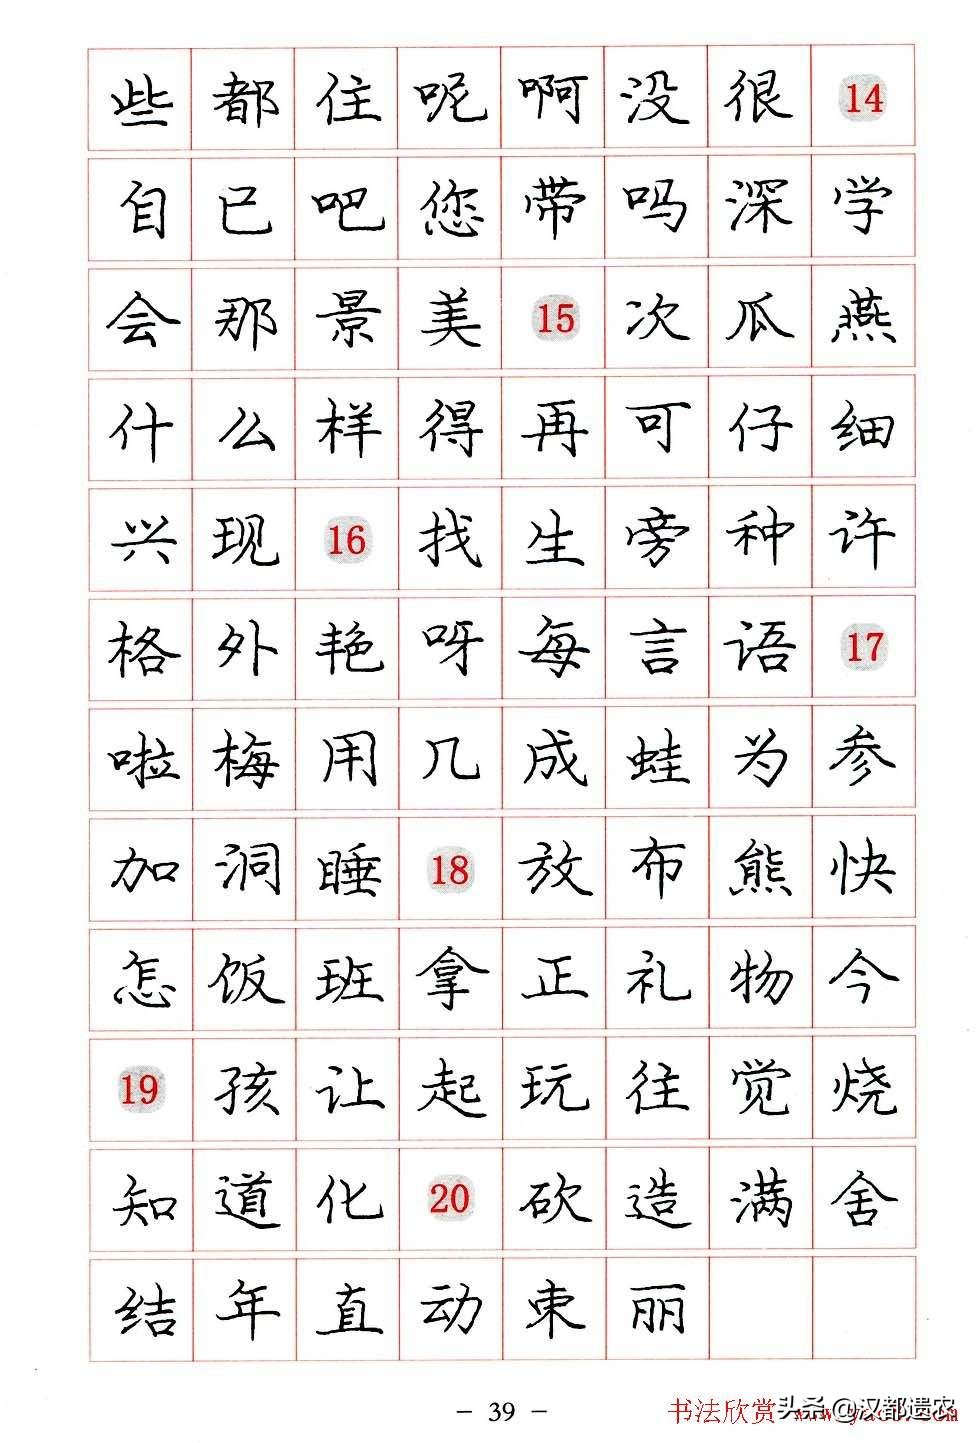 些都住呢啊没很14
自己吧您带吗深学
会那景美15次瓜燕
什么样得再可仔细
兴现16找生旁种许
格外艳呀每言语17
啦梅用几成蛙为参
加洞睡18放布熊快
怎饭班拿正礼物今
19孩让起玩往觉烧
知道化20砍造满舍
结年直动束丽
- 39 -
书法欣赏
头条@汉都遗农